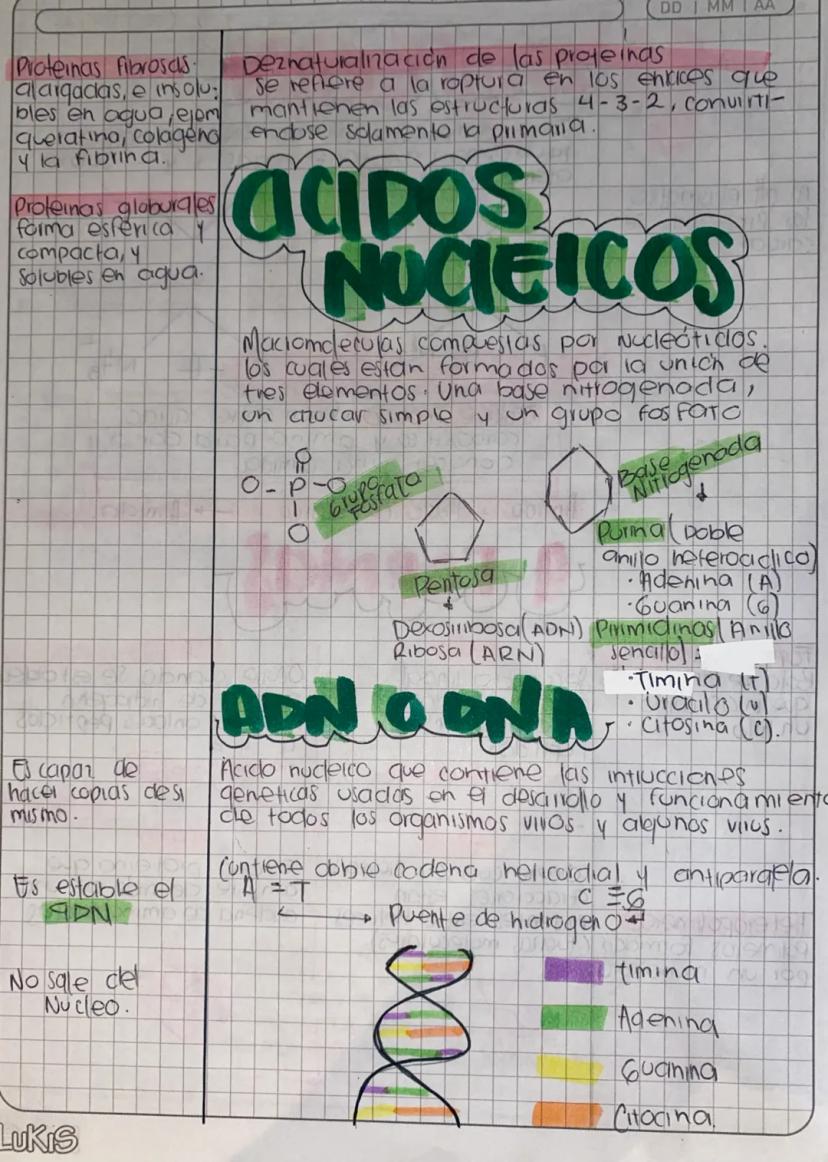 DD | MM | AA
Proteinas fibrosas:
alargadas, e insolu-
bles en agua, ejem
queratina, colageno
y la fibrina.
Proteinas globurales
forma esferica y
compacta, y
solubles en agua.
Deznaturalización de las proteinas
se refiere a la roptura en los enlices que
mantienen las estructuras 4-3-2, convirti-
endose solamento la primaria.
ACIDOS
NUCLEICOS
Macromoleculas compuestas por nucleótidos.
los cuales estan formados por la unión de
tres elementos. Una base nitrogenada,
un azucar simple y un grupo fosfato
O
O - P - O
O
Grupo
Fosfato
Pentosa
Dexosirribosa (ADN)
Ribosa (ARN)
Base
Nitrogenada
Purina (Doble
anillo heterociclico)
· Adenina (A)
· Guanina (G)
Pirimidinas (Anillo
sencillo):
· Timina (T)
· Uracilo (U)
· Citosina (C).
ADN O DNA
Es capaz de
hacer copias de si
mismo.
Es estable el
ADN
No sale del
Nucleo.
Acido nucleico que contiene las intrucciones
geneticas usadas en el desarrollo y funcionamiento
de todos los organismos vivos y algunos virus.
Contiene doble cadena helicordial y antiparalela.
A = T
C ≡ G
Puente de hidrogeno
timina
Adenina
Guanina
Citocina
LUKIS